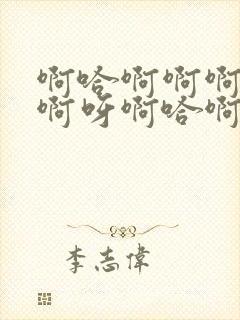 啊哈啊啊啊
啊呀啊哈啊
李志偉